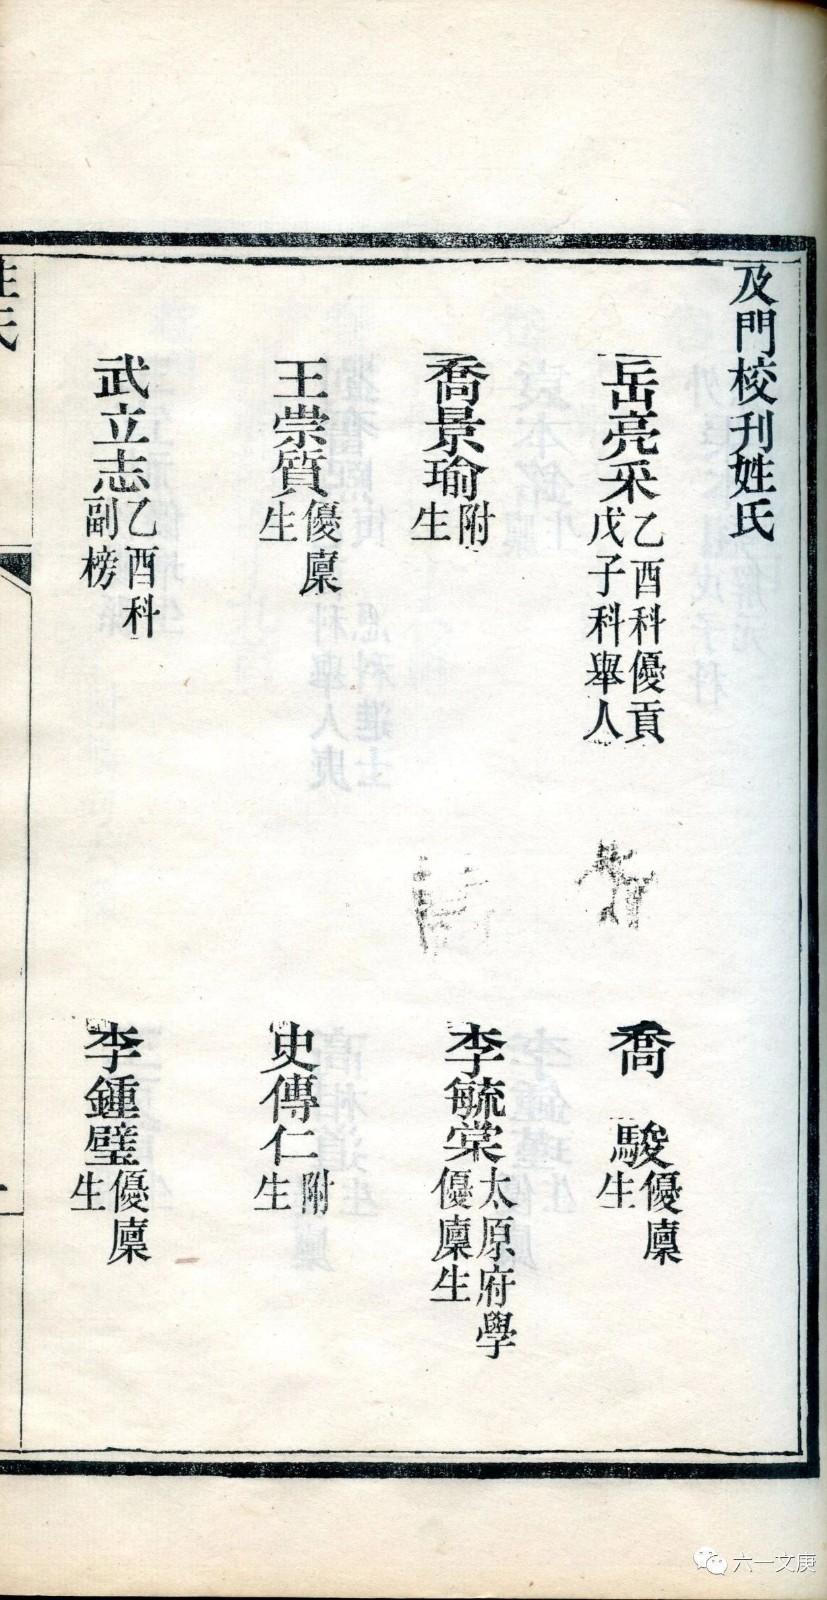 及門校刊姓氏
岳亮采 乙酉科優貢戊子科舉人
喬駿 優廩生
喬景瑜 附生
李毓棠 太原府學優廩生
王崇質 優廩生
史傳仁 附生
武立志 乙酉科副榜
李鍾璧 優廩生
姓氏
六一文庚